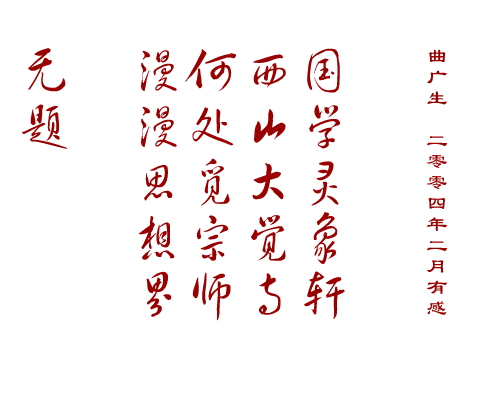 无题
漫漫思想界
何处觅宗师
西山大觉寺
国学灵象轩
曲广生 二零零四年二月有感